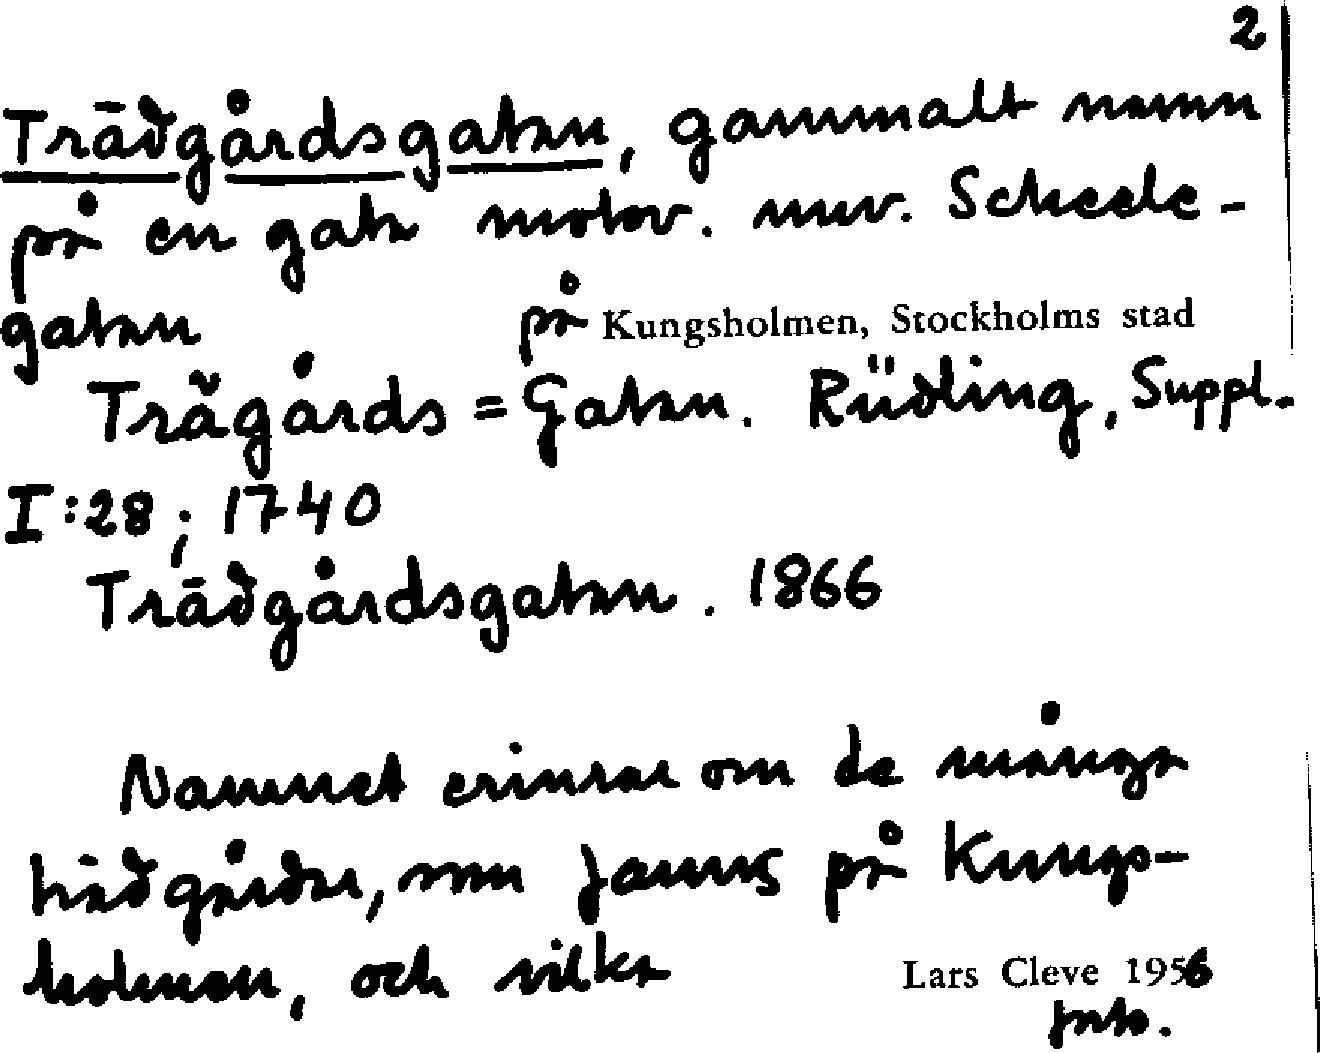 2
Trädgårdsgatan, gammalt namn
på en gata motsv. nuv. Scheele-
gatan på Kungsholmen, Stockholms stad
Trägårds=Gatan. Rüdling, Suppl.
I:28; 1740
Trädgårdsgatan. 1866
Namnet erinrar om de många
trädgårdar, som fanns på Kungs-
holmen, och vilka
Lars Cleve 1956
forts.